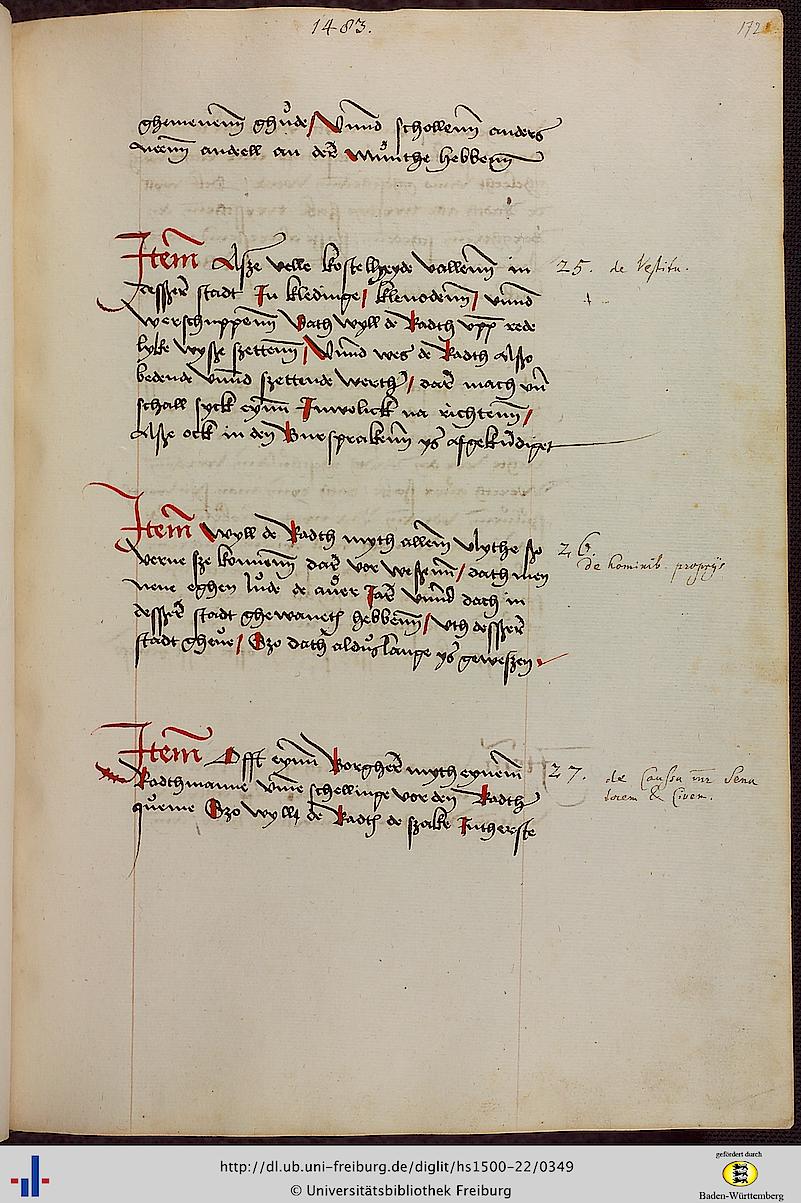 1483.
172
ghemenenn ghůde / Vnnd schollenn anders
nenn andell an der Můnthe hebbenn
Item Alsze velle kostelheyde vallenn in
desszer stadt In kledinge / klenodenn / vnnd
werschuppenn Dath wyll de Radth vpp rede
lyke wysze szettenn / Vnnd wes de Radth Alszo
bedende vnnd szettende werth / dar mach vn
schall syck eynn Inwolick na richtenn /
Alsze ock in den Bursprakenn ys afgekundiget
25. de Vestitu.
Item Wyll de Radth myth allem vlythe szo
verne sze konnenn dar vor weszenn / dath men
nene eghen lude de auer Jar vnnd dach in
desszer stadt ghewaneth hebbenn / vth desszer
stadt gheue / Szo dath aldus lange ys geweszen
26.
de hominib. proprijs
Item Offt eynn Borgher myth eynem
Radthmanne vmme schellinge vor den Radth
queme Szo wyll de Radth de szake Intherste
27. de Caussa inter Sena
torem & Civem.
http://dl.ub.uni-freiburg.de/diglit/hs1500-22/0349
© Universitätsbibliothek Freiburg
gefördert durch
Baden-Württemberg